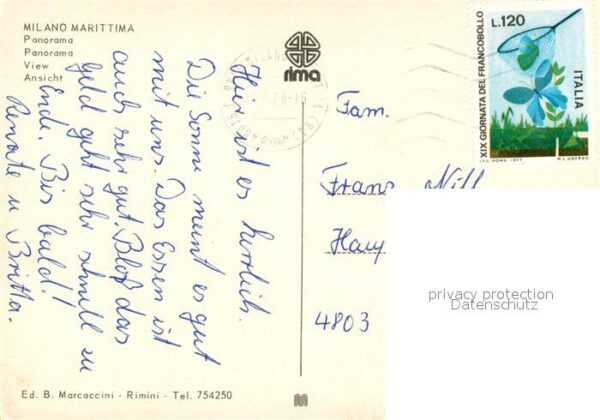 MILANO MARITTIMA
Panorama
Panorama
View
Ansicht
rima
L.120
XIX GIORNATA DEL FRANCOBOLLO
ITALIA
I.P.S. - ROMA - 1977
Hier ist es herrlich.
Die Sonne meint es gut
mit uns. Das Essen ist
auch sehr gut. Bloß das
Geld geht sehr schnell zu
Ende. Bis bald!
Renate u Britta.
Fam.
Franz
4803
privacy protection
Datenschutz
Ed. B. Marcaccini - Rimini - Tel. 754250